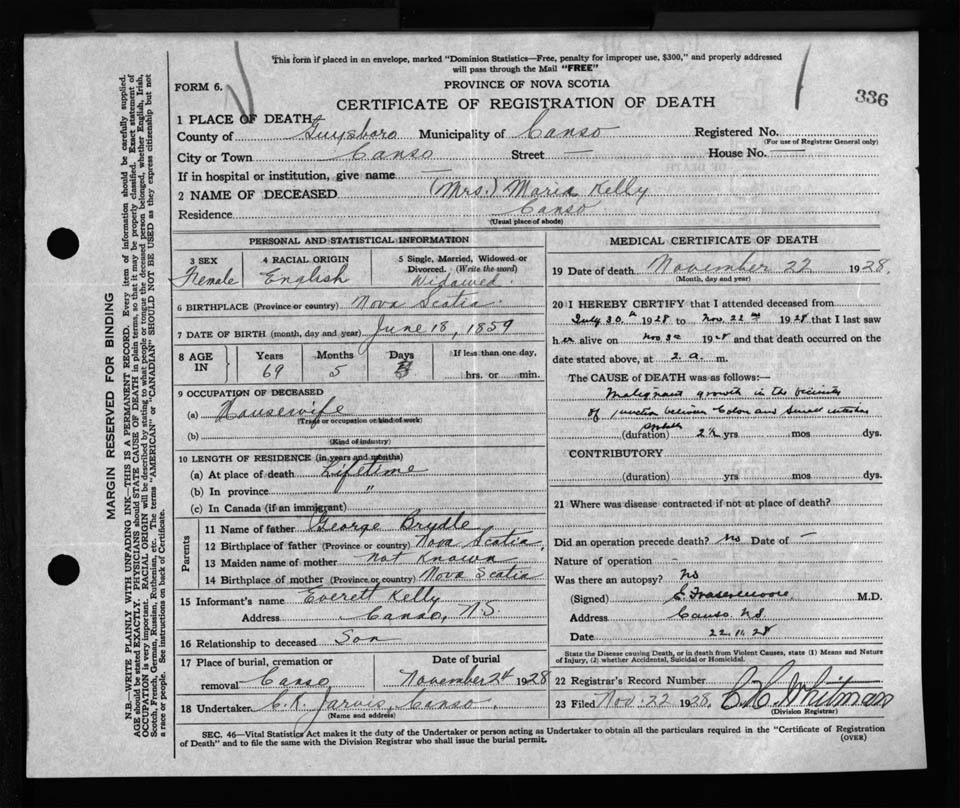 This form if placed in an envelope, marked "Dominion Statistics—Free, penalty for improper use, $300," and properly addressed
will pass through the Mail "FREE"
FORM 6.
PROVINCE OF NOVA SCOTIA
CERTIFICATE OF REGISTRATION OF DEATH
336
1 PLACE OF DEATH
County of Guysboro Municipality of Canso Registered No.
(For use of Registrar General only)
City or Town Canso Street — House No. —
If in hospital or institution, give name —
2 NAME OF DECEASED (Mrs.) Maria Kelly
Residence Canso
(Usual place of abode)
PERSONAL AND STATISTICAL INFORMATION
3 SEX Female
4 RACIAL ORIGIN English
5 Single, Married, Widowed or Divorced. (Write the word) Widowed.
6 BIRTHPLACE (Province or country) Nova Scotia.
7 DATE OF BIRTH (month, day and year) June 18, 1859
8 AGE IN Years 69 Months 5 Days If less than one day, hrs. or min.
9 OCCUPATION OF DECEASED
(a) Housewife
(Trade or occupation or kind of work)
(b)
(Kind of industry)
10 LENGTH OF RESIDENCE (in years and months)
(a) At place of death Lifetime
(b) In province "
(c) In Canada (if an immigrant)
Parents
11 Name of father George Brydle
12 Birthplace of father (Province or country) Nova Scotia,
13 Maiden name of mother not Known
14 Birthplace of mother (Province or country) Nova Scotia
15 Informant's name Everett Kelly
Address Canso, N.S.
16 Relationship to deceased Son
17 Place of burial, cremation or removal Canso
Date of burial November 24 1928
18 Undertaker C.K. Jarvis, Canso.
(Name and address)
MEDICAL CERTIFICATE OF DEATH
19 Date of death November 22 1928.
(Month, day and year)
20 I HEREBY CERTIFY that I attended deceased from
July 30th 1928 to Nov. 22nd 1928 that I last saw
her alive on Nov 1928 and that death occurred on the
date stated above, at 2 a. m.
The CAUSE of DEATH was as follows:—
Malignant growth in the vicinity
of junction between Colon and Small intestine
(duration) 2½ yrs mos dys.
CONTRIBUTORY
(duration) yrs mos dys.
21 Where was disease contracted if not at place of death?
Did an operation precede death? No Date of —
Nature of operation —
Was there an autopsy? No
(Signed) M.D.
Address Canso. NS
Date 22.11.28
State the Disease causing Death, or in death from Violent Causes, state (1) Means and Nature
of Injury, (2) whether Accidental, Suicidal or Homicidal.
22 Registrar's Record Number
23 Filed Nov. 22 1928. C.C. Whitman
(Division Registrar)
SEC. 46—Vital Statistics Act makes it the duty of the Undertaker or person acting as Undertaker to obtain all the particulars required in the "Certificate of Registration
of Death" and to file the same with the Division Registrar who shall issue the burial permit.
(OVER)
MARGIN RESERVED FOR BINDING
N.B.—WRITE PLAINLY WITH UNFADING INK—THIS IS A PERMANENT RECORD. Every item of information should be carefully supplied.
AGE should be stated EXACTLY. PHYSICIANS should STATE CAUSE OF DEATH in plain terms, so that it may be properly classified. Exact statement of
OCCUPATION is very important. RACIAL ORIGIN will be described by stating to what people or tongue the deceased person belonged, whether English, Irish,
Scotch, French, German, Russian, Ruthenian, etc. The terms "AMERICAN" or "CANADIAN" SHOULD NOT BE USED as they express citizenship but not
a race or people. See instructions on back of Certificate.